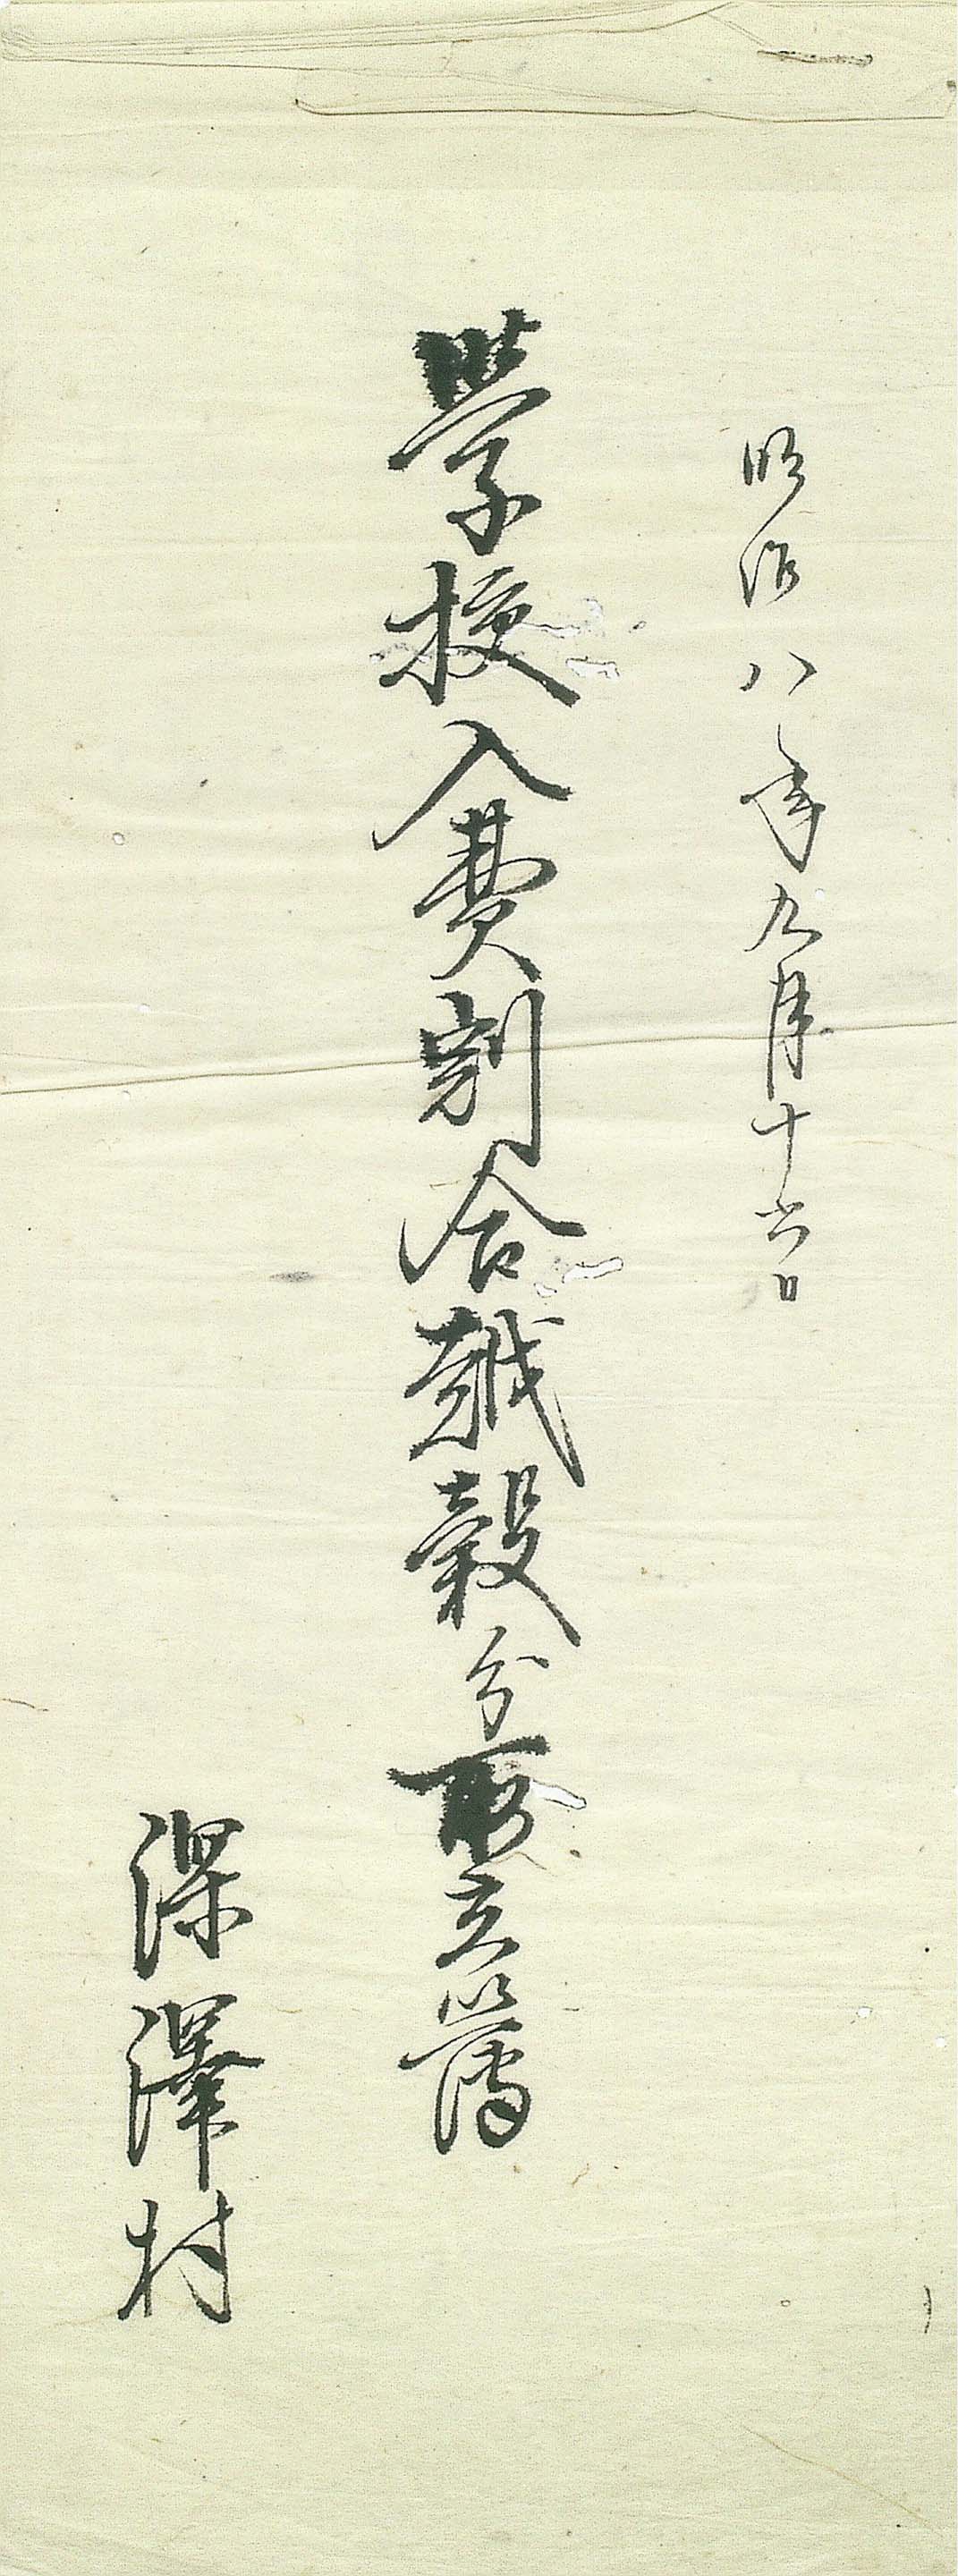 明治八年九月十六日
學校入費割合越穀分取立簿
深澤村